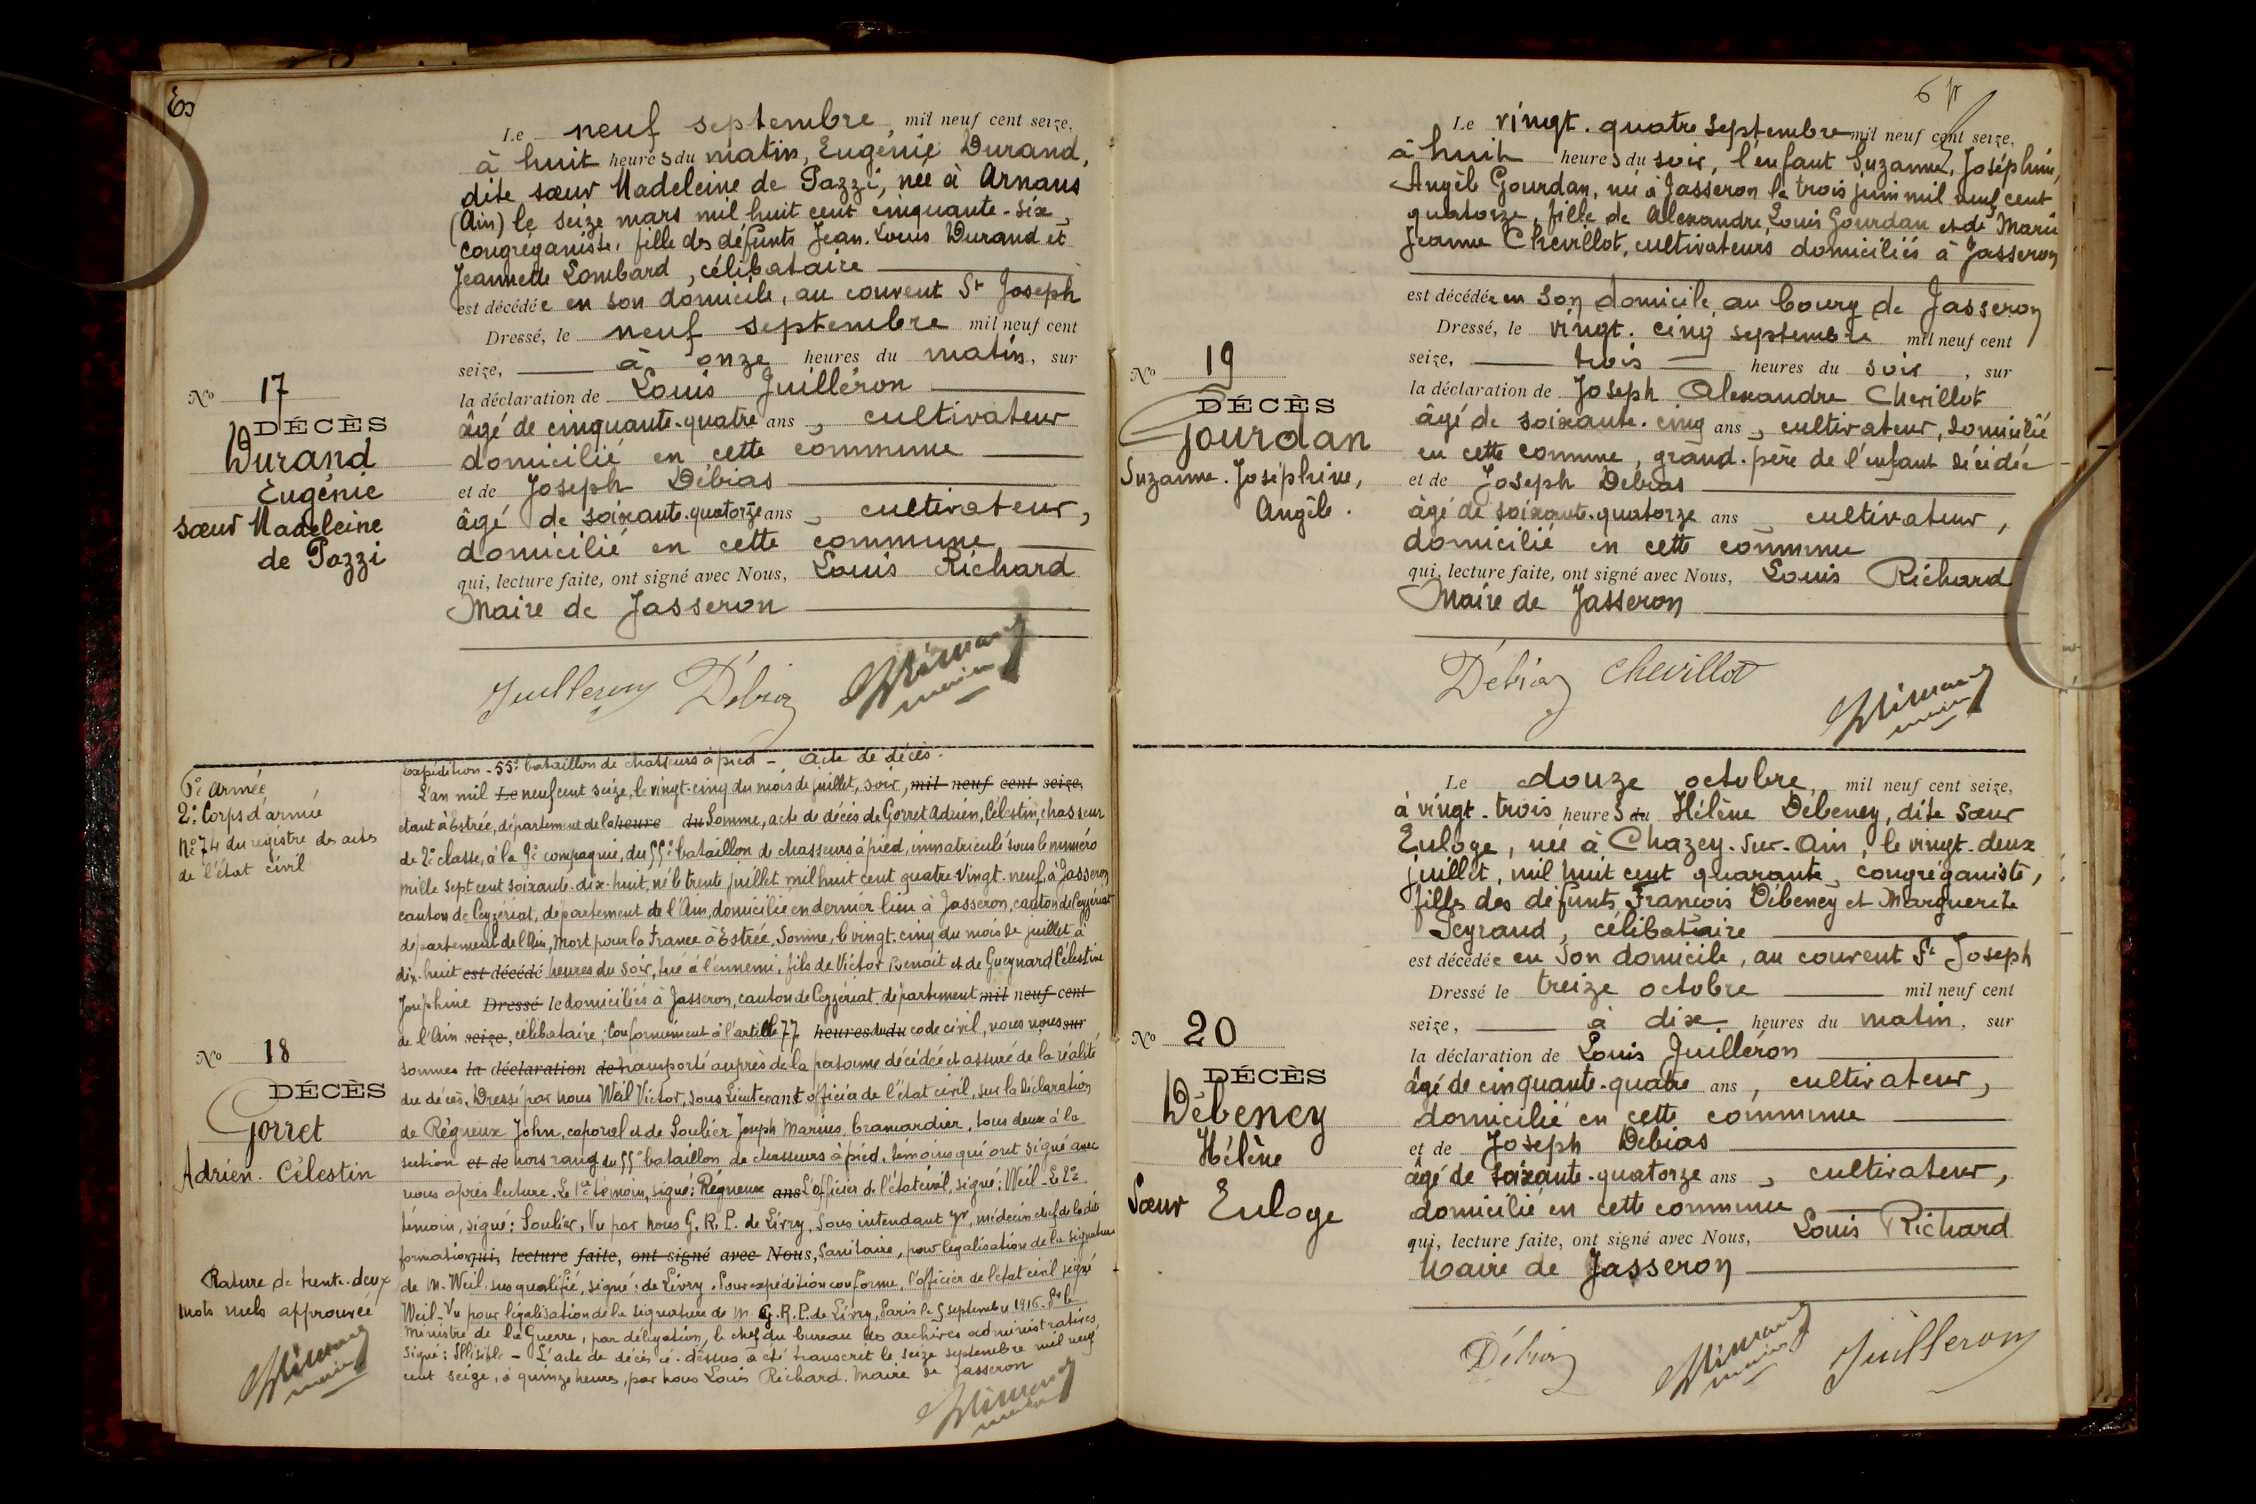 Le neuf septembre, mil neuf cent seize,
à huit heures du matin, Eugénie Durand,
dite sœur Madeleine de Pazzi, née à Arnans
(Ain) le seize mars mil huit cent cinquante-six,
congréganiste, fille des défunts Jean-Louis Durand et
Jeannette Lombard, célibataire
est décédée en son domicile, au couvent St Joseph
Dressé, le neuf septembre mil neuf cent
seize, à onze heures du matin, sur
la déclaration de Louis Juilléron
âgé de cinquante-quatre ans, cultivateur
domicilié en cette commune
et de Joseph Débias
âgé de soixante-quatorze ans, cultivateur,
domicilié en cette commune
qui, lecture faite, ont signé avec Nous, Louis Richard
Maire de Jasseron
No 17
DÉCÈS
Durand
Eugénie
sœur Madeleine
de Pazzi
Juilleron Débias
maire
6e Armée
2e Corps d'armée
No 74 du registre des actes
de l'état civil
No 18
DÉCÈS
Gorret
Adrien. Célestin
Rature de trente-deux
mots nuls approuvée
maire
Expédition - 55e bataillon de chasseurs à pied - Acte de décès.
L'an mil Le neuf cent seize, le vingt-cinq du mois de juillet, soir, mil neuf cent seize,
étant à Estrée, département de la heure du Somme, acte de décès de Gorret Adrien, Célestin, chasseur
de 2e classe, à la 9e compagnie, du 55e bataillon de chasseurs à pied, immatriculé sous le numéro
mille sept cent soixante-dix-huit, né le trente juillet mil huit cent quatre-vingt-neuf à Jasseron
canton de Ceyzériat, département de l'Ain, domicilié en dernier lieu à Jasseron, canton de Ceyzériat
département de l'Ain, mort pour la France à Estrée, Somme, le vingt-cinq du mois de juillet à
dix-huit est décédé heures du soir, tué à l'ennemi, fils de Victor Benoit et de Gueynard Célestine
Joséphine Dressé le domiciliés à Jasseron, canton de Ceyzériat, département mil neuf cent
de l'Ain seize, célibataire; Conformément à l'article 77 heures du du code civil, nous nous sur
sommes la déclaration de transporté auprès de la personne décédée et assuré de la réalité
du décès. Dressé par nous Weil Victor, sous Lieutenant officier de l'état civil, sur la déclaration
de Régneux John, caporal et de Soulier Joseph Marius, brancardier, tous deux à la
section et de hors rang du 55e bataillon de chasseurs à pied, témoins qui ont signé avec
nous après lecture. Le 1er témoin, signé: Régneux ans L'officier de l'état civil, signé: Weil - Le 2e
témoin, signé: Soulier, Vu par nous G. R. P. de Livry, Sous intendant, médecin chef de la dite
formation qui, lecture faite, ont signé avec Nous, Sanitaire, pour légalisation de la signature
de M. Weil, sus qualifié, signé: de Livry. Pour expédition conforme, l'officier de l'état civil signé
Weil - Vu pour légalisation de la signature de M. G. R. P. de Livry, Paris le 5 septembre 1916. Pr le
Ministre de la Guerre, par délégation, le chef du bureau des archives administratives
Signé: Illisible - L'acte de décès ci-dessus a été transcrit le seize septembre mil neuf
cent seize, à quinze heures, par nous Louis Richard, Maire de Jasseron
maire
6
Le vingt-quatre septembre mil neuf cent seize,
à huit heures du soir, l'enfant Suzanne, Joséphine,
Angèle Gourdan, née à Jasseron le trois juin mil neuf cent
quatorze, fille de Alexandre, Louis Gourdan et de Marie
Jeanne Chevillot, cultivateurs domiciliés à Jasseron
est décédée en son domicile, au bourg de Jasseron
Dressé, le vingt-cinq septembre mil neuf cent
seize, trois heures du soir, sur
la déclaration de Joseph Alexandre Chevillot
âgé de soixante-cinq ans, cultivateur, domicilié
en cette commune, grand-père de l'enfant décédée
et de Joseph Debias
âgé de soixante-quatorze ans, cultivateur,
domicilié en cette commune
qui, lecture faite, ont signé avec Nous, Louis Richard
Maire de Jasseron
No 19
DÉCÈS
Gourdan
Suzanne. Joséphine,
Angèle.
Débias Chevillot
maire
Le douze octobre, mil neuf cent seize,
à vingt-trois heures du Hélène Débeney, dite Sœur
Euloge, née à Chazey-sur-Ain, le vingt-deux
juillet, mil huit cent quarante, congréganiste,
fille des défunts François Débeney et Marguerite
Peyraud, célibataire
est décédée en son domicile, au couvent St Joseph
Dressé le treize octobre mil neuf cent
seize, à dix heures du matin, sur
la déclaration de Louis Juilléron
âgé de cinquante-quatre ans, cultivateur,
domicilié en cette commune
et de Joseph Debias
âgé de soixante-quatorze ans, cultivateur,
domicilié en cette commune
qui, lecture faite, ont signé avec Nous, Louis Richard
Maire de Jasseron
No 20
DÉCÈS
Débeney
Hélène
Sœur Euloge
Débias maire Juilleron